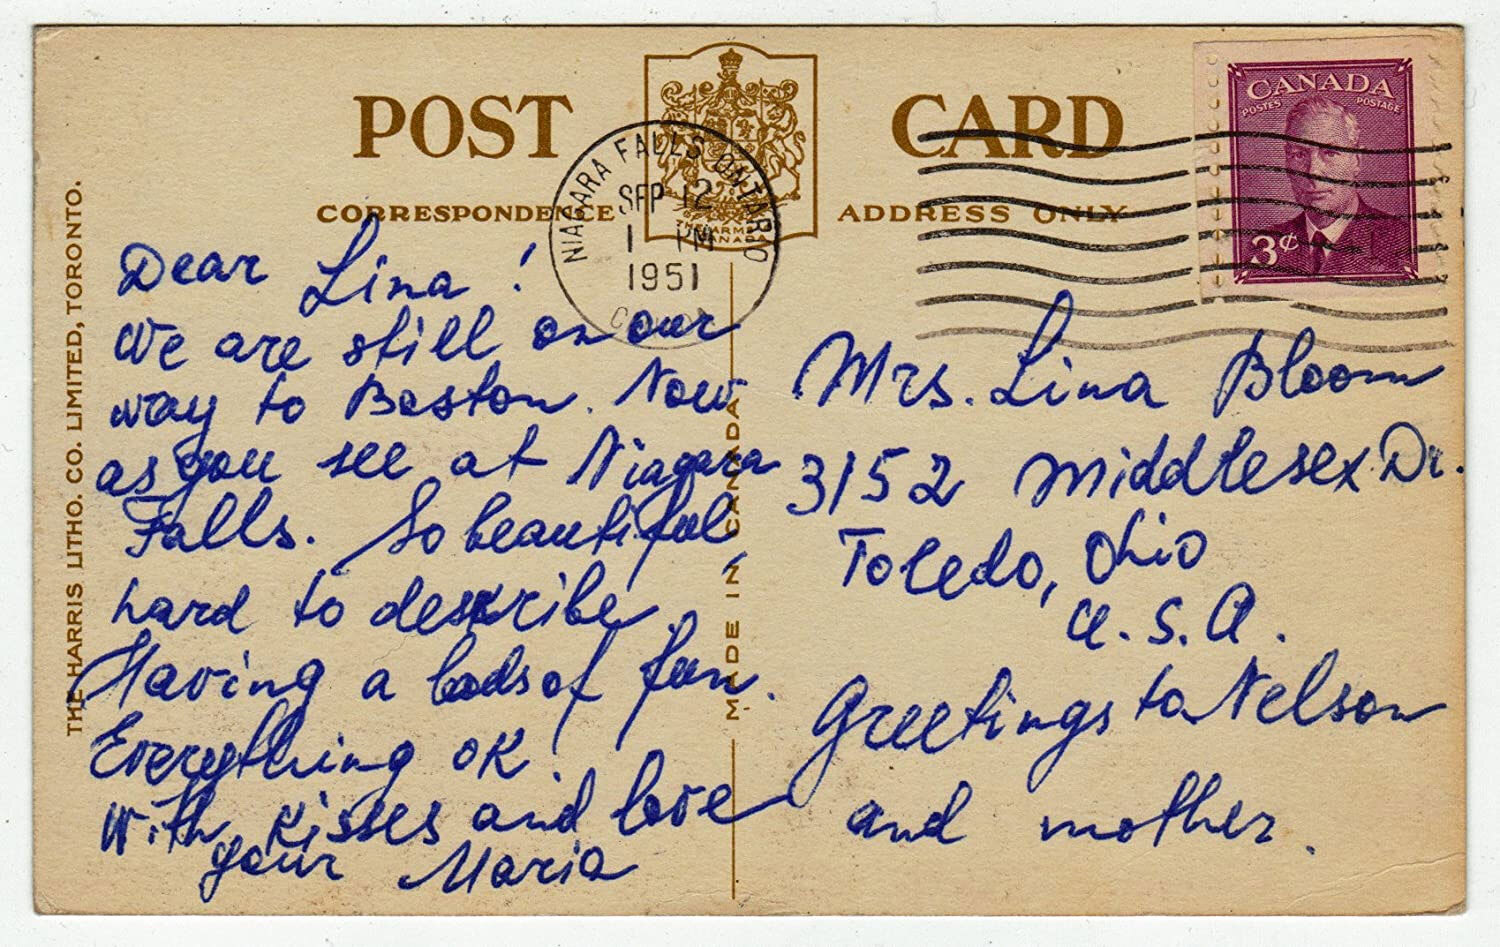 POST CARD
CORRESPONDENCE
ADDRESS ONLY
THE ARMS
CANADA
NIAGARA FALLS ONTARIO
SEP 12
1 PM
1951
CANADA
POSTES POSTAGE
3¢
THE HARRIS LITHO. CO. LIMITED, TORONTO.
MADE IN CANADA
Dear Lina!
We are still on our
way to Boston. Now
as you see at Niagara
Falls. So beautiful
hard to describe.
Having a lods of fun.
Everything OK!
With kisses and love
your Maria
Mrs. Lina Bloom
3152 Middlesex Dr.
Toledo, Ohio
U.S.A.
Greetings to Nelson
and mother.